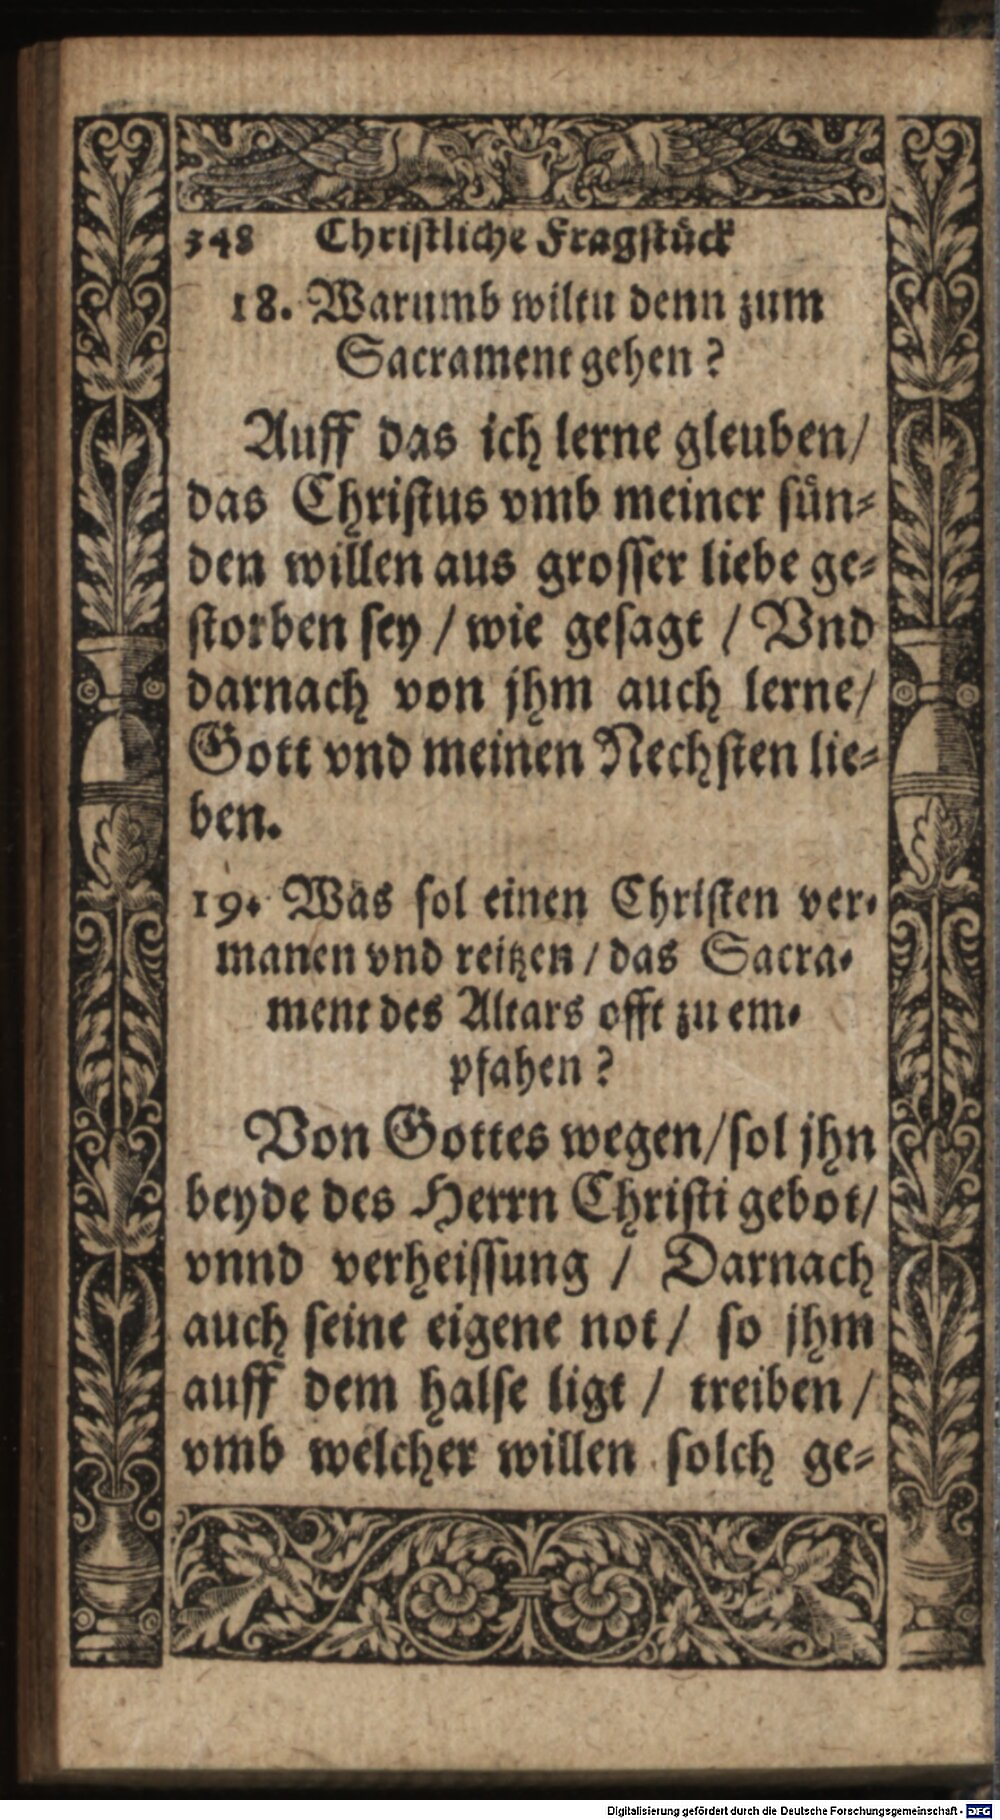 348 Christliche Fragstück
18. Warumb wiltu denn zum
Sacrament gehen?
Auff das ich lerne gleuben/
das Christus vmb meiner sün-
den willen aus grosser liebe ge-
storben sey / wie gesagt / Vnd
darnach von jhm auch lerne/
Gott vnd meinen Nechsten lie-
ben.
19. Was sol einen Christen ver-
manen vnd reitzen / das Sacra-
ment des Altars offt zu em-
pfahen?
Von Gottes wegen/sol jhn
beyde des Herrn Christi gebot/
vnnd verheissung / Darnach
auch seine eigene not / so jhm
auff dem halse ligt / treiben /
vmb welcher willen solch ge-
Digitalisierung gefördert durch die Deutsche Forschungsgemeinschaft - DFG